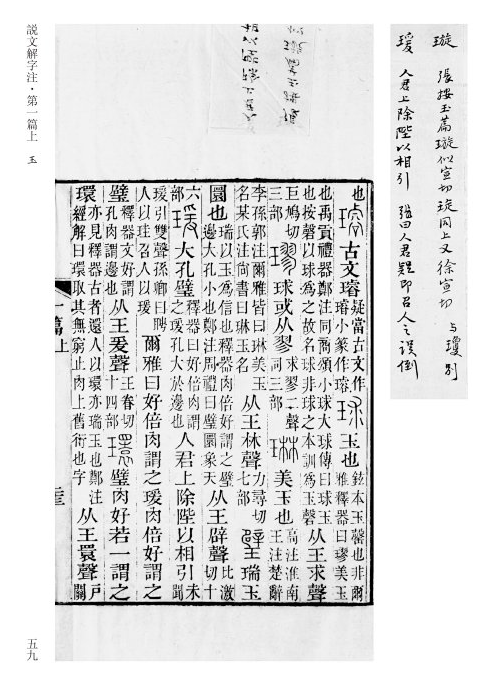 璇　張按玉篇璇似宣切琁同上又徐宣切　与瓊別
瑗　人君上除陛以相引　張曰人君疑即召人之誤倒
也　古文璿疑當古文作璿小篆作璿　球　玉也鉉本玉磬也非爾雅釋器曰璆美玉
也禹貢禮器鄭注同商頌小球大球傳曰球玉也按磬以球爲之故名球非球之本訓爲玉磬从王求聲
巨鳩切三部　璆　球或从翏求翏二聲同三部　琳　美玉也高注淮南王注楚辭
李孫郭注爾雅皆曰琳美玉名某氏注尙書曰琳玉名从王林聲力尋切七部　璧　瑞玉
圜也瑞以玉爲信也釋器肉倍好謂之璧邊大孔小也鄭注周禮曰璧圜象天从王辟聲比激切十
六部　瑗　大孔璧釋器曰好倍肉謂之瑗孔大於邊也人君上除陛以相引未聞
瑗引雙聲孫卿曰聘人以珪召人以瑗爾雅曰好倍肉謂之瑗肉倍好謂之
璧釋器文好謂孔肉謂邊也从王爰聲王眷切十四部　環　璧肉好若一謂之
環亦見釋器古者還人以環亦瑞玉也鄭注經解曰環取其無窮止肉上舊衍也字从王瞏聲戶關
一篇上
説文解字注・第一篇上　玉
五九